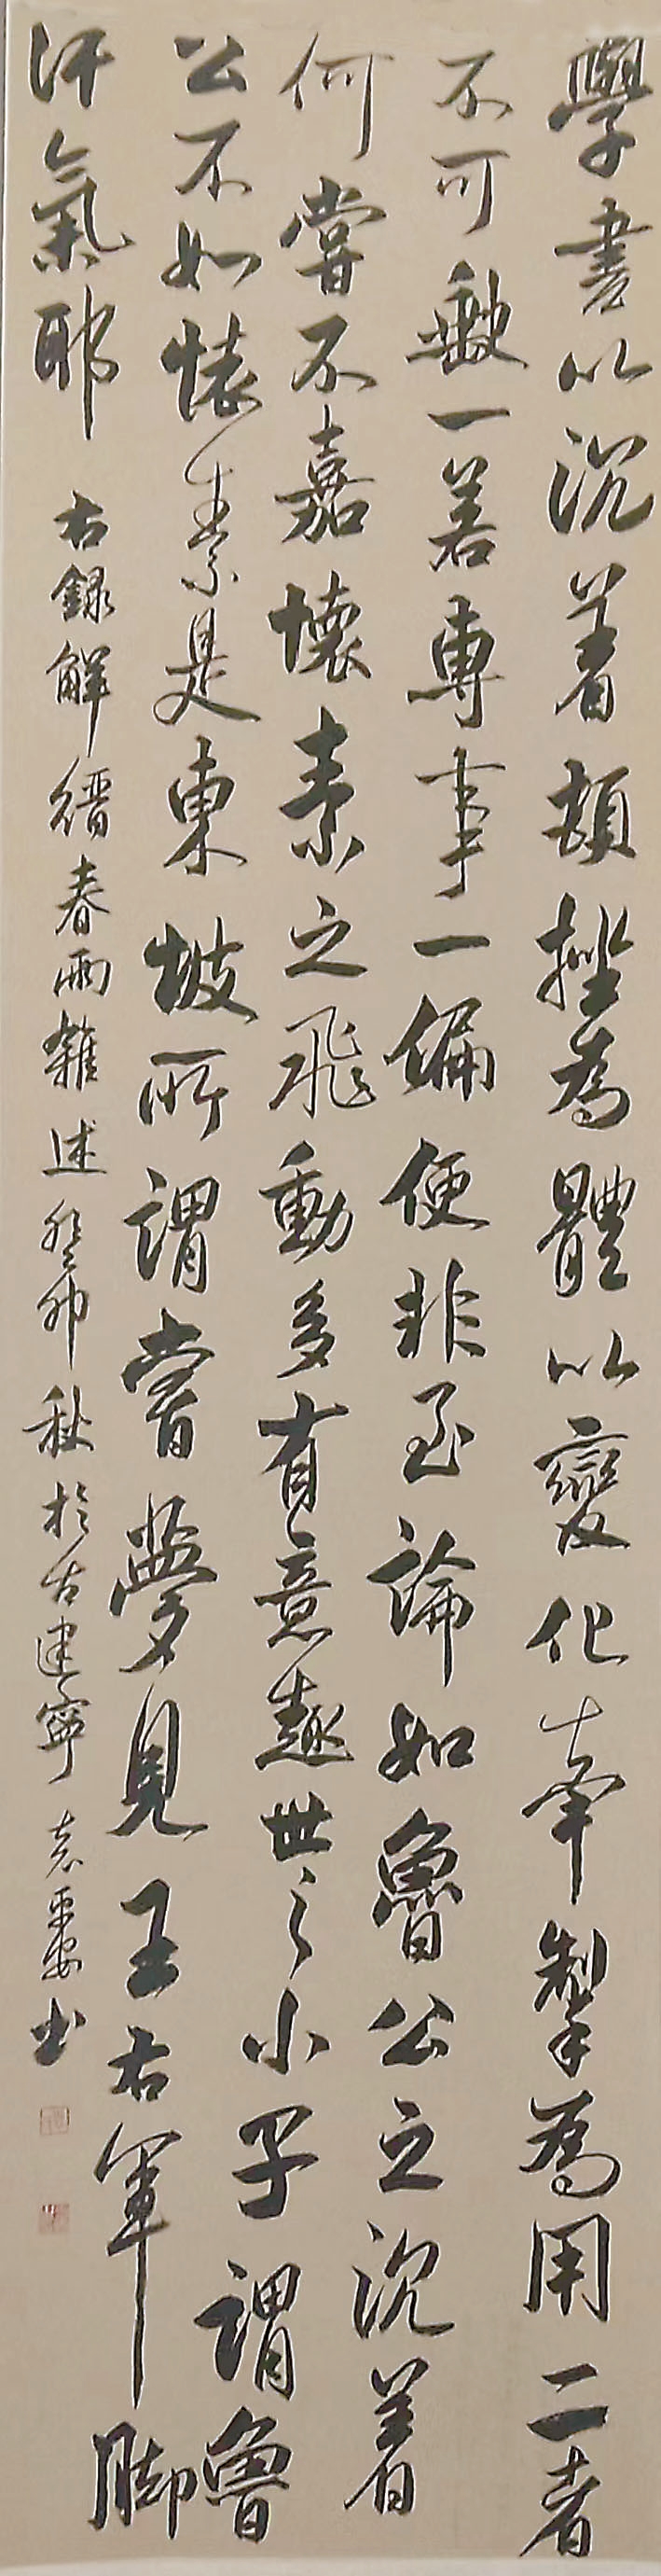 學書以沉着頓挫為體以變化牽掣為用二者
不可缺一若專事一偏便非至論如魯公之沉着
何嘗不嘉懷素之飛動多有意趣世之小子謂魯
公不如懷素是東坡所謂嘗夢見王右軍脚
汗氣耶
右錄解縉春雨雜述癸卯秋於古建寧
書